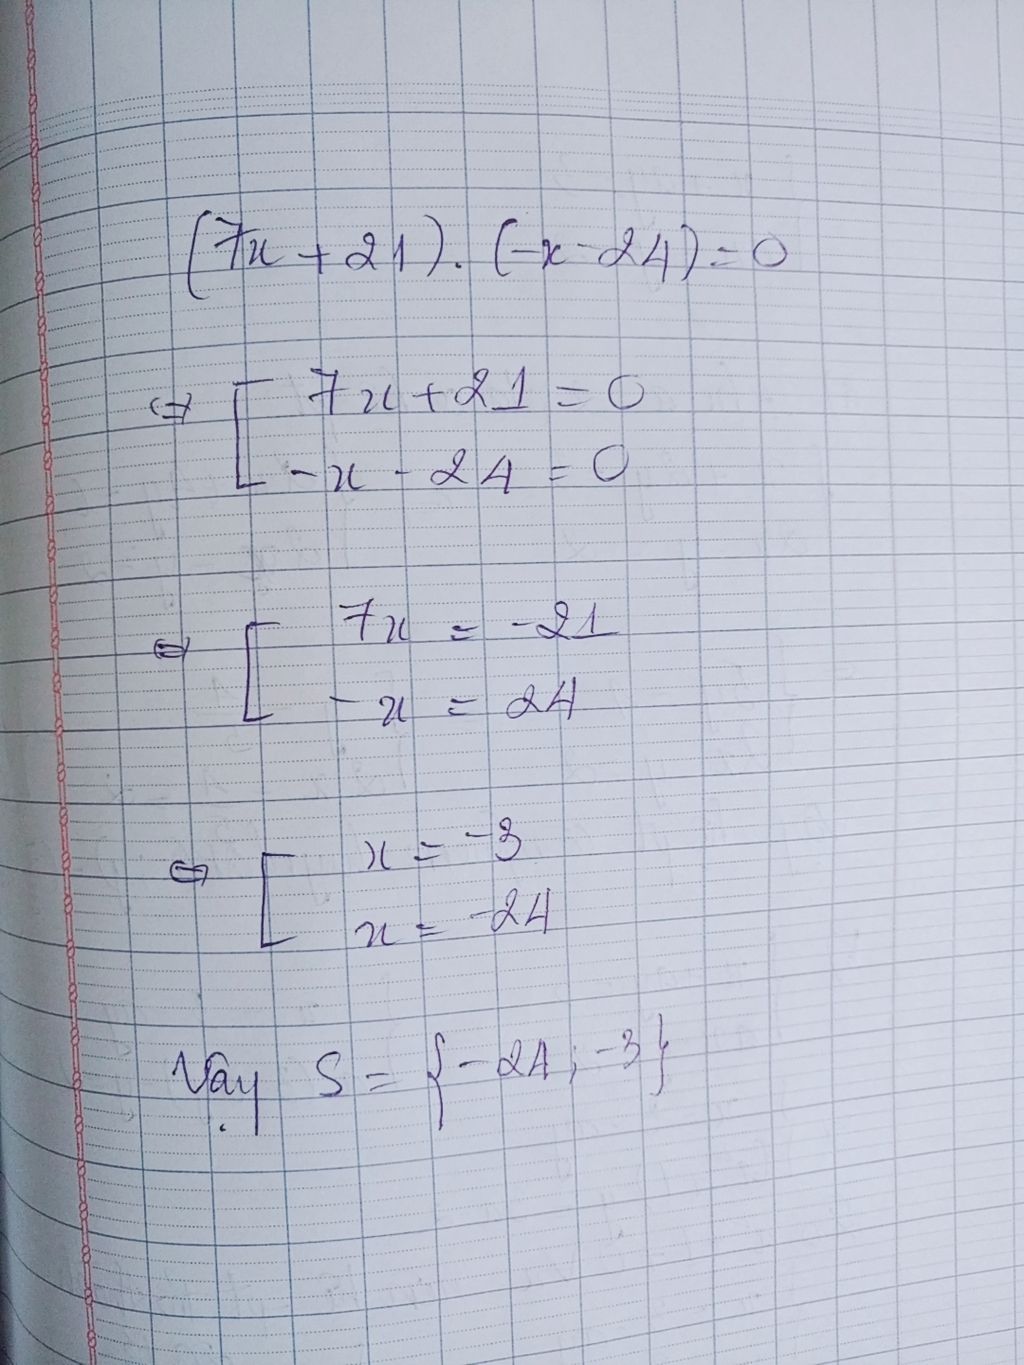 (7x + 21) . (-x - 24) = 0
⇔ [ 7x + 21 = 0
-x - 24 = 0
⇔ [ 7x = -21
-x = 24
⇔ [ x = -3
x = -24
Vậy S = {-24 ; -3}